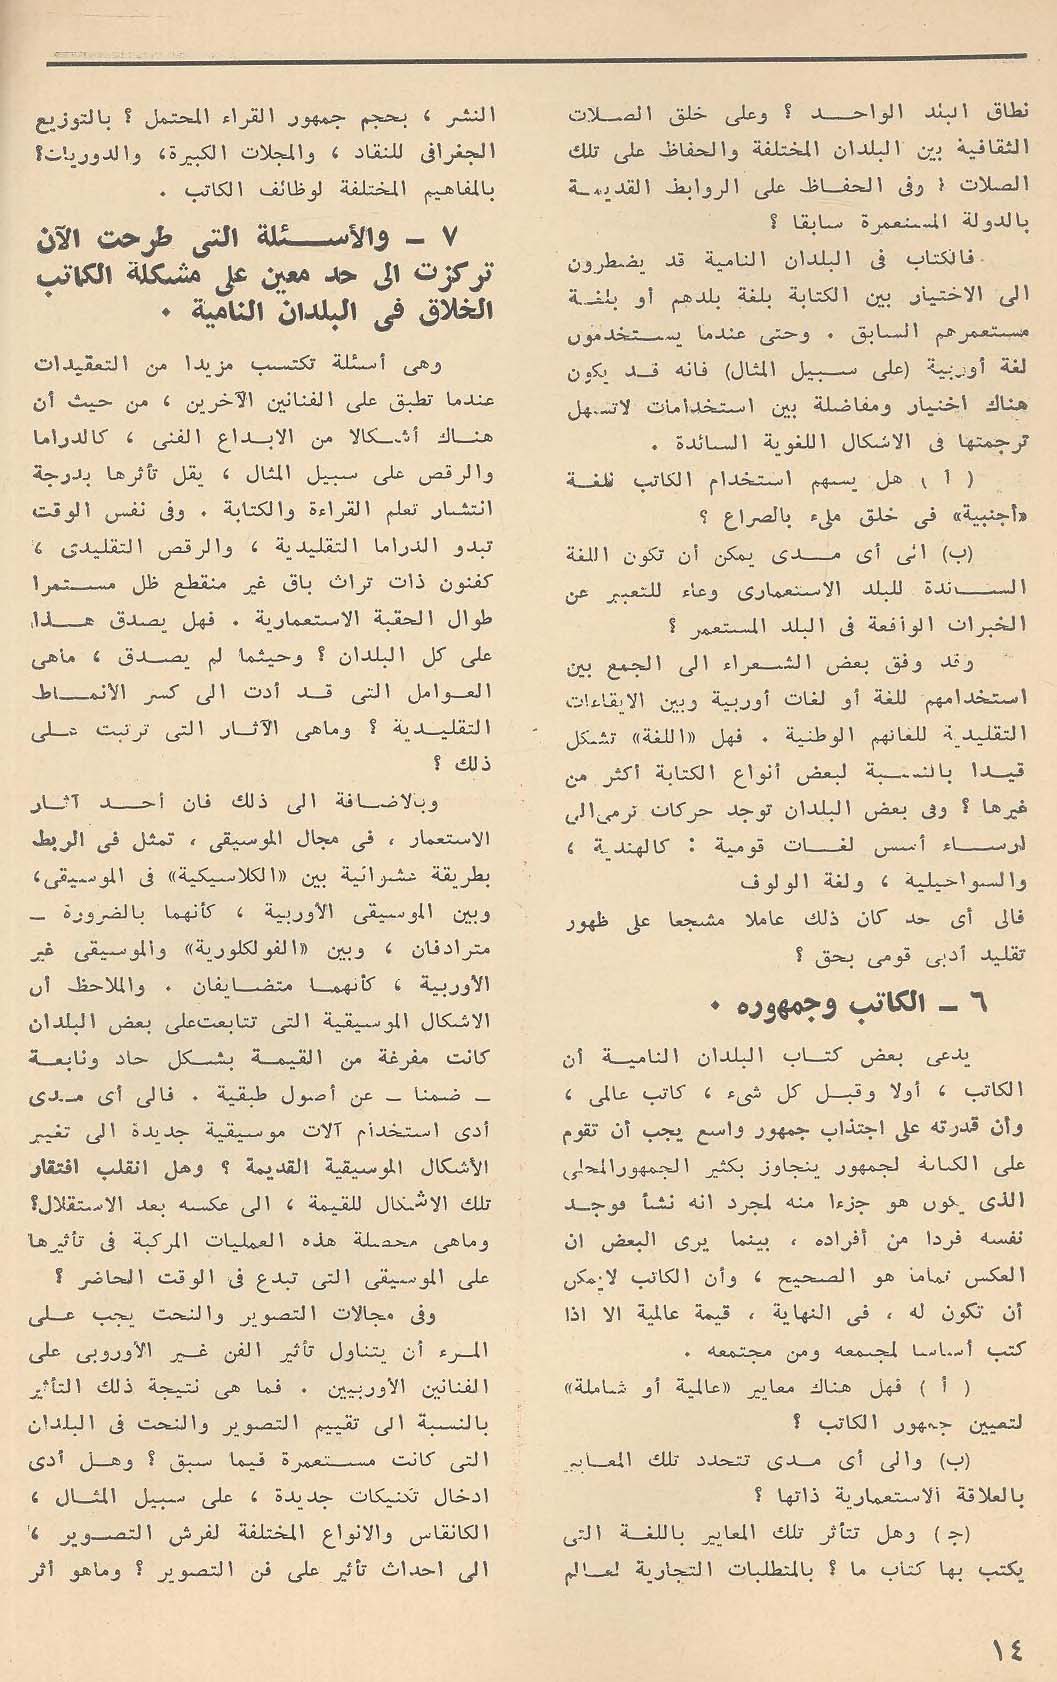 نطاق البلد الواحد ؟ وعلى خلق الصلات
الثقافية بين البلدان المختلفة والحفاظ على تلك
الصلات ؟ وفى الحفاظ على الروابط القديمة
بالدولة المستعمرة سابقا ؟
فالكتاب فى البلدان النامية قد يضطرون
الى الاختيار بين الكتابة بلغة بلدهم أو بلغة
مستعمرهم السابق . وحتى عندما يستخدمون
لغة أوربية (على سبيل المثال) فانه قد يكون
هناك اختيار ومفاضلة بين استخدامات لاتسهل
ترجمتها فى الاشكال اللغوية السائدة .
( أ ) هل يسهم استخدام الكاتب للغة
«أجنبية» فى خلق ملىء بالصراع ؟
(ب) الى أى مدى يمكن أن تكون اللغة
السائدة للبلد الاستعمارى وعاء للتعبير عن
الخبرات الواقعة فى البلد المستعمر ؟
وقد وفق بعض الشعراء الى الجمع بين
استخدامهم للغة أو لغات أوربية وبين الايقاعات
التقليدية للغاتهم الوطنية . فهل «اللغة» تشكل
قيدا بالنسبة لبعض أنواع الكتابة أكثر من
غيرها ؟ وفى بعض البلدان توجد حركات ترمى الى
ارساء أسس لغات قومية : كالهندية ،
والسواحيلية ، ولغة الولوف
فالى أى حد كان ذلك عاملا مشجعا على ظهور
تقليد أدبى قومى بحق ؟
٦ ــ الكاتب وجمهوره .
يدعى بعض كتاب البلدان النامية أن
الكاتب ، أولا وقبل كل شىء ، كاتب عالمى ،
وأن قدرته على اجتذاب جمهور واسع يجب أن تقوم
على الكتابة لجمهور يتجاوز بكثير الجمهور المحلى
الذى يكون هو جزءا منه لمجرد انه نشأ فوجد
نفسه فردا من أفراده ، بينما يرى البعض ان
العكس تماما هو الصحيح ، وأن الكاتب لايمكن
أن تكون له ، فى النهاية ، قيمة عالمية الا اذا
كتب أساسا لمجتمعه ومن مجتمعه .
( أ ) فهل هناك معايير «عالمية أو شاملة»
لتعيين جمهور الكاتب ؟
(ب) والى أى مدى تتحدد تلك المعايير
بالعلاقة الاستعمارية ذاتها ؟
(ج) وهل تتأثر تلك المعايير باللغة التى
يكتب بها كتاب ما ؟ بالمتطلبات التجارية لعالم
النشر ، بحجم جمهور القراء المحتمل ؟ بالتوزيع
الجغرافى للنقاد ، والمجلات الكبيرة، والدوريات؟
بالمفاهيم المختلفة لوظائف الكاتب .
٧ ــ والأسئلة التى طرحت الآن
تركزت الى حد معين على مشكلة الكاتب
الخلاق فى البلدان النامية .
وهى أسئلة تكتسب مزيدا من التعقيدات
عندما تطبق على الفنانين الآخرين ، من حيث أن
هناك أشكالا من الابداع الفنى ، كالدراما
والرقص على سبيل المثال ، يقل تأثرها بدرجة
انتشار تعلم القراءة والكتابة . وفى نفس الوقت
تبدو الدراما التقليدية ، والرقص التقليدى ،
كفنون ذات تراث باق غير منقطع ظل مستمرا
طوال الحقبة الاستعمارية . فهل يصدق هذا
على كل البلدان ؟ وحيثما لم يصدق ، ماهى
العوامل التى قد أدت الى كسر الأنماط
التقليدية ؟ وماهى الآثار التى ترتبت على
ذلك ؟
وبالاضافة الى ذلك فان أحد آثار
الاستعمار ، فى مجال الموسيقى ، تمثل فى الربط
بطريقة عشوائية بين «الكلاسيكية» فى الموسيقى،
وبين الموسيقى الأوربية ، كأنهما بالضرورة ــ
مترادفان ، وبين «الفولكلورية» والموسيقى غير
الأوربية ، كأنهما متضايفان . والملاحظ أن
الاشكال الموسيقية التى تتابعت على بعض البلدان
كانت مفرغة من القيمة بشكل حاد ونابعة
ــ ضمنا ــ عن أصول طبقية . فالى أى مدى
أدى استخدام آلات موسيقية جديدة الى تغيير
الأشكال الموسيقية القديمة ؟ وهل انقلب افتقار
تلك الاشكال للقيمة ، الى عكسه بعد الاستقلال؟
وماهى محصلة هذه العمليات المركبة فى تأثيرها
على الموسيقى التى تبدع فى الوقت الحاضر ؟
وفى مجالات التصوير والنحت يجب على
المرء أن يتناول تأثير الفن غير الأوروبى على
الفنانين الأوربيين . فما هى نتيجة ذلك التأثير
بالنسبة الى تقييم التصوير والنحت فى البلدان
التى كانت مستعمرة فيما سبق ؟ وهل أدى
ادخال تكنيكات جديدة ، على سبيل المثال ،
الكانفاس والانواع المختلفة لفرش التصوير ،
الى احداث تأثير على فن التصوير ؟ وماهو أثر
١٤